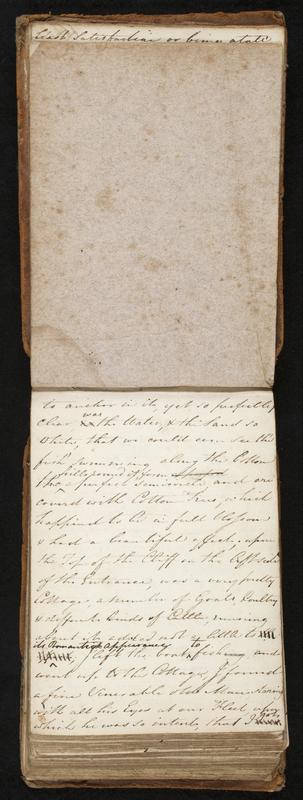 least Satisfaction or being a state
to anchor in it, yet so perfectly
clear was the Water, & the Sand so
White, that we could even see the
fish swimming along the Bottom
the Hills round it form
a perfect Semicircle, and are
coverd with Cotton Trees, which
happined to be in full blossom
& had a beautiful effect, upon
the Top of the Cliff on the left side
of the Entrance, was a very pretty
Cottage, a number of Goats Poultry
& different kinds of Cattle, running
about it added not a little to
its Romantick appearance
I left the boat fishing, and
went up to the Cottage, I found
a fine Venerable old Man Gazing
with all his Eyes at our Fleet upon
which he was so intent, that I